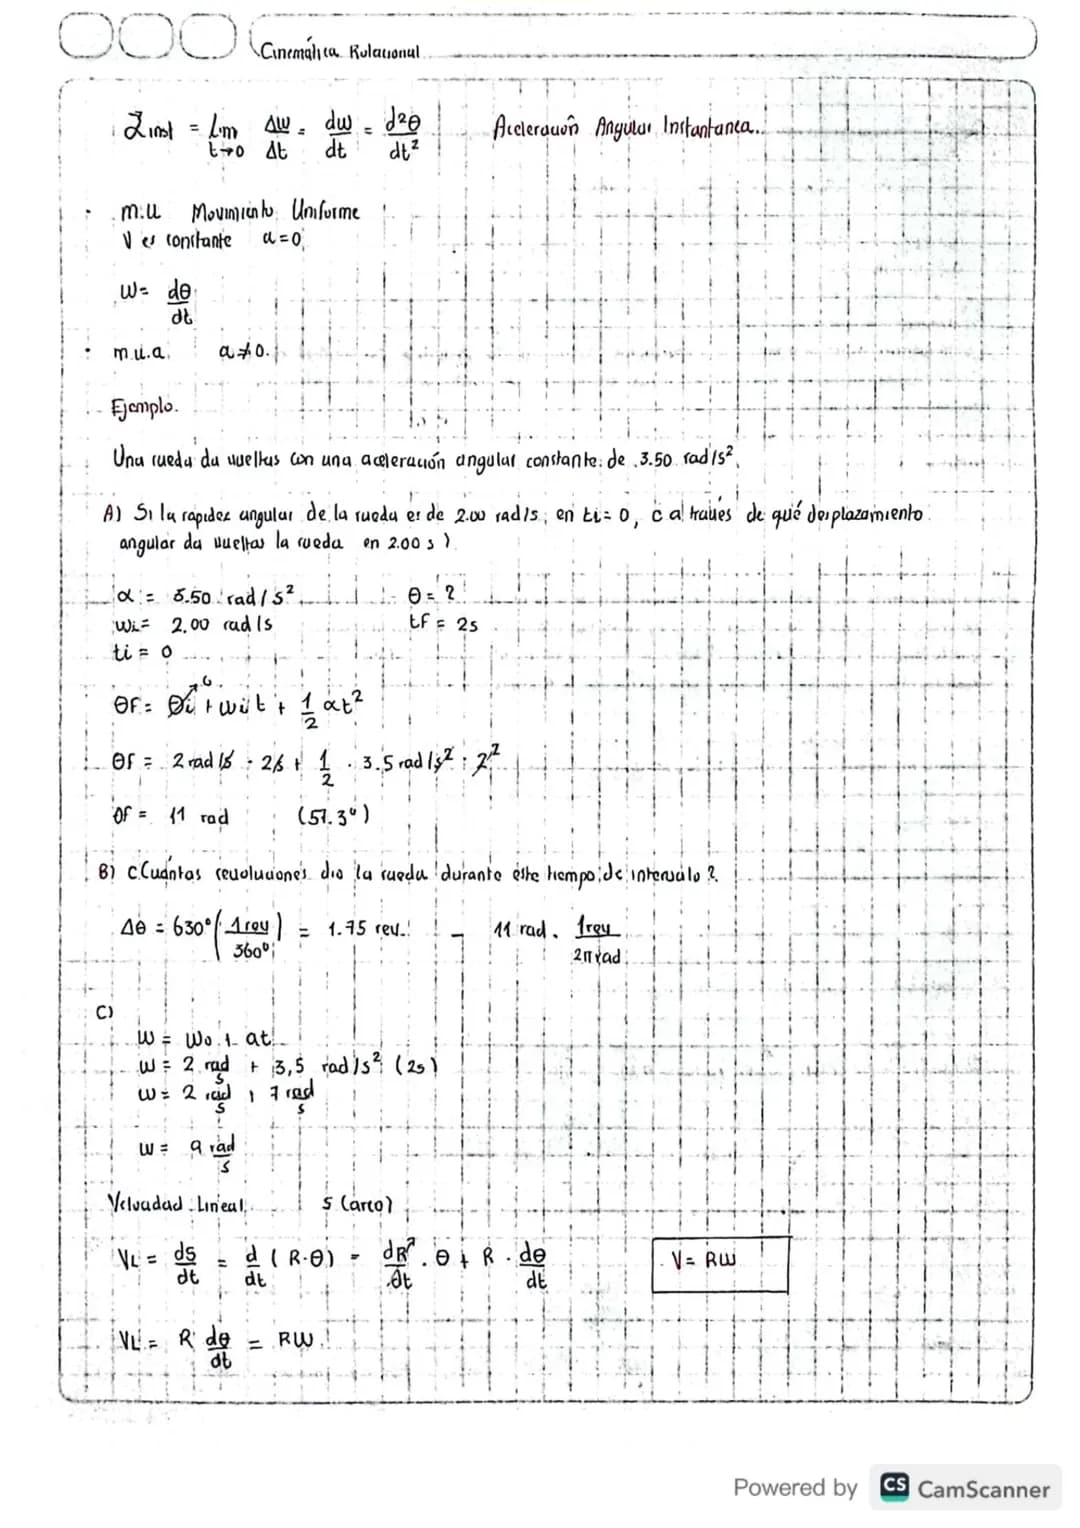 Cinemática Rotacional
αinst = Lim t→0 Δw/Δt = dw/dt = d²θ/dt² Aceleración Angular Instantanea.
· m.u Movimiento Uniforme
V es constante a=0
w= dθ/dt
· m.u.a. a≠0.
- Ejemplo.
Una rueda da vueltas con una aceleración angular constante de 3.50 rad/s².
A) Si la rapidez angular de la rueda es de 2.00 rad/s en ti=0, ¿a través de qué desplazamiento
angular da vueltas la rueda en 2.00 s?
α = 3.50 rad/s² θ = ?
wi= 2.00 rad/s tF = 2s
ti = 0
θF = θi→0 + wit + 1/2 αt²
θF = 2 rad/s · 2s + 1/2 · 3.5 rad/s² · 2²
θF = 11 rad (57.3°)
B) ¿Cuántas revoluciones dio la rueda durante este tiempo de intervalo?
Δθ = 630° (1rev/360°) = 1.75 rev. - 11 rad. 1rev/2π rad
C)
w = wo + at
w = 2 rad/s + 3,5 rad/s² (2s)
w = 2 rad/s + 7 rad/s
w = 9 rad/s
Velocidad Lineal. S (arco)
VL = ds/dt = d/dt (R·θ) = dR/dt · θ + R · dθ/dt V= RW
VL = R dθ/dt = RW
Powered by CS CamScanner